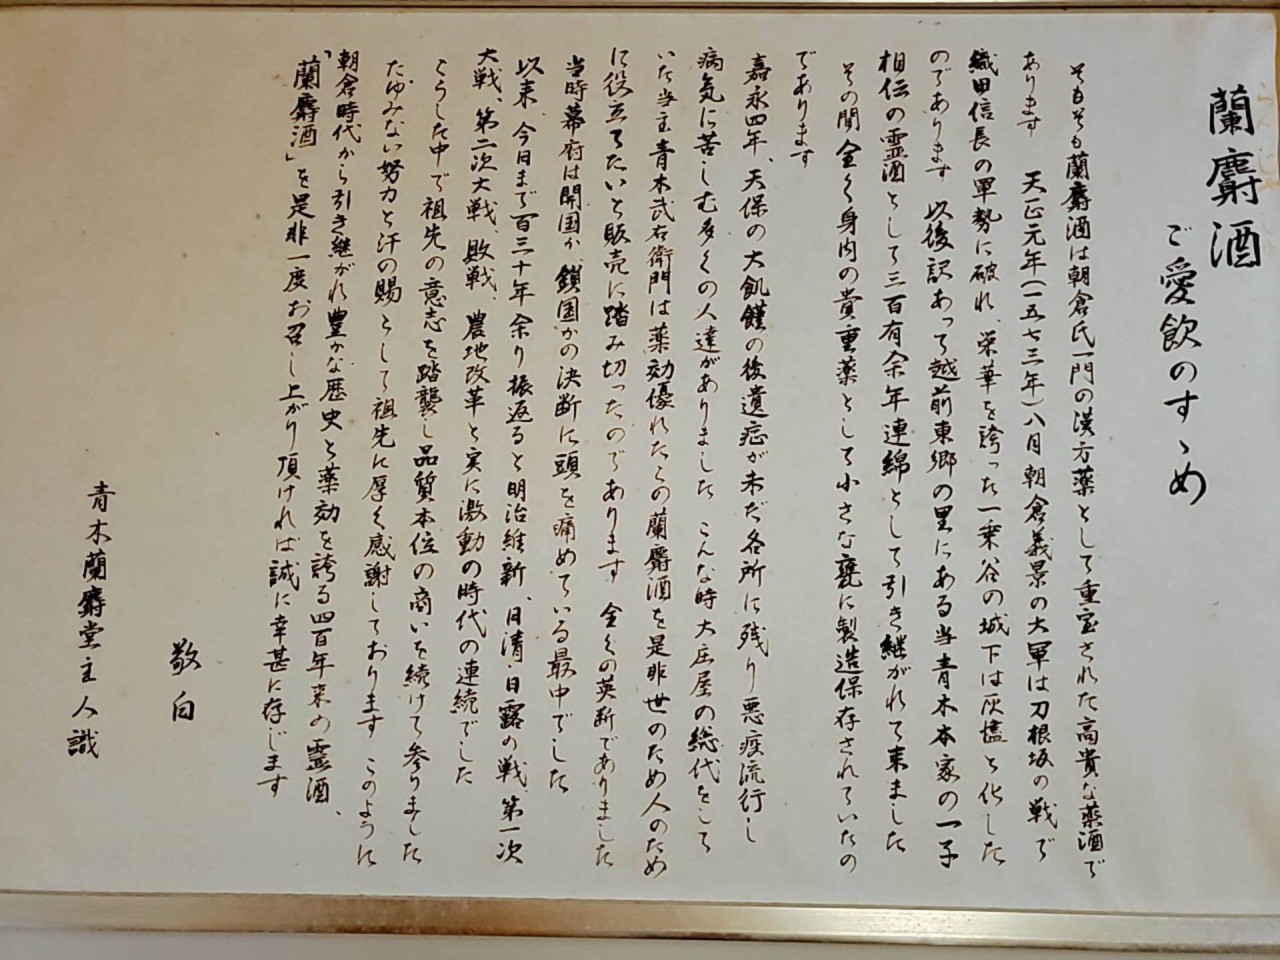 蘭麝酒
ご愛飲のすゝめ
そもそも蘭麝酒は朝倉氏一門の漢方薬として重宝された高貴な薬酒で
あります　天正元年(一五七三年)八月朝倉義景の大軍は刀根坂の戦で
織田信長の軍勢に破れ、栄華を誇った一乗谷の城下は灰燼と化した
のであります　以後訳あって越前東郷の里にある当青木本家の一子
相伝の霊酒として三百有余年連綿として引き継がれて来ました
その間全く身内の貴重薬として小さな甕に製造保存されていたの
であります
嘉永四年、天保の大飢饉の後遺症が未だ各所に残り悪疫流行し
病気に苦しむ多くの人達がありました　こんな時大庄屋の総代をして
いた当主青木武右衛門は薬効優れたこの蘭麝酒を是非世のため人のため
に役立てたいと販売に踏み切ったのであります　全くの英断でありました
当時幕府は開国か、鎖国かの決断に頭を痛めている最中でした
以来、今日まで百三十年余り振返ると明治維新、日清・日露の戦、第一次
大戦、第二次大戦、敗戦、農地改革と実に激動の時代の連続でした
こうした中で祖先の意志を踏襲し品質本位の商いを続けて参りました
たゆみない努力と汗の賜として祖先に厚く感謝しております　このように
朝倉時代から引き継がれ豊かな歴史と薬効を誇る四百年来の霊酒、
「蘭麝酒」を是非一度お召し上がり頂ければ誠に幸甚に存じます
敬白
青木蘭麝堂主人識